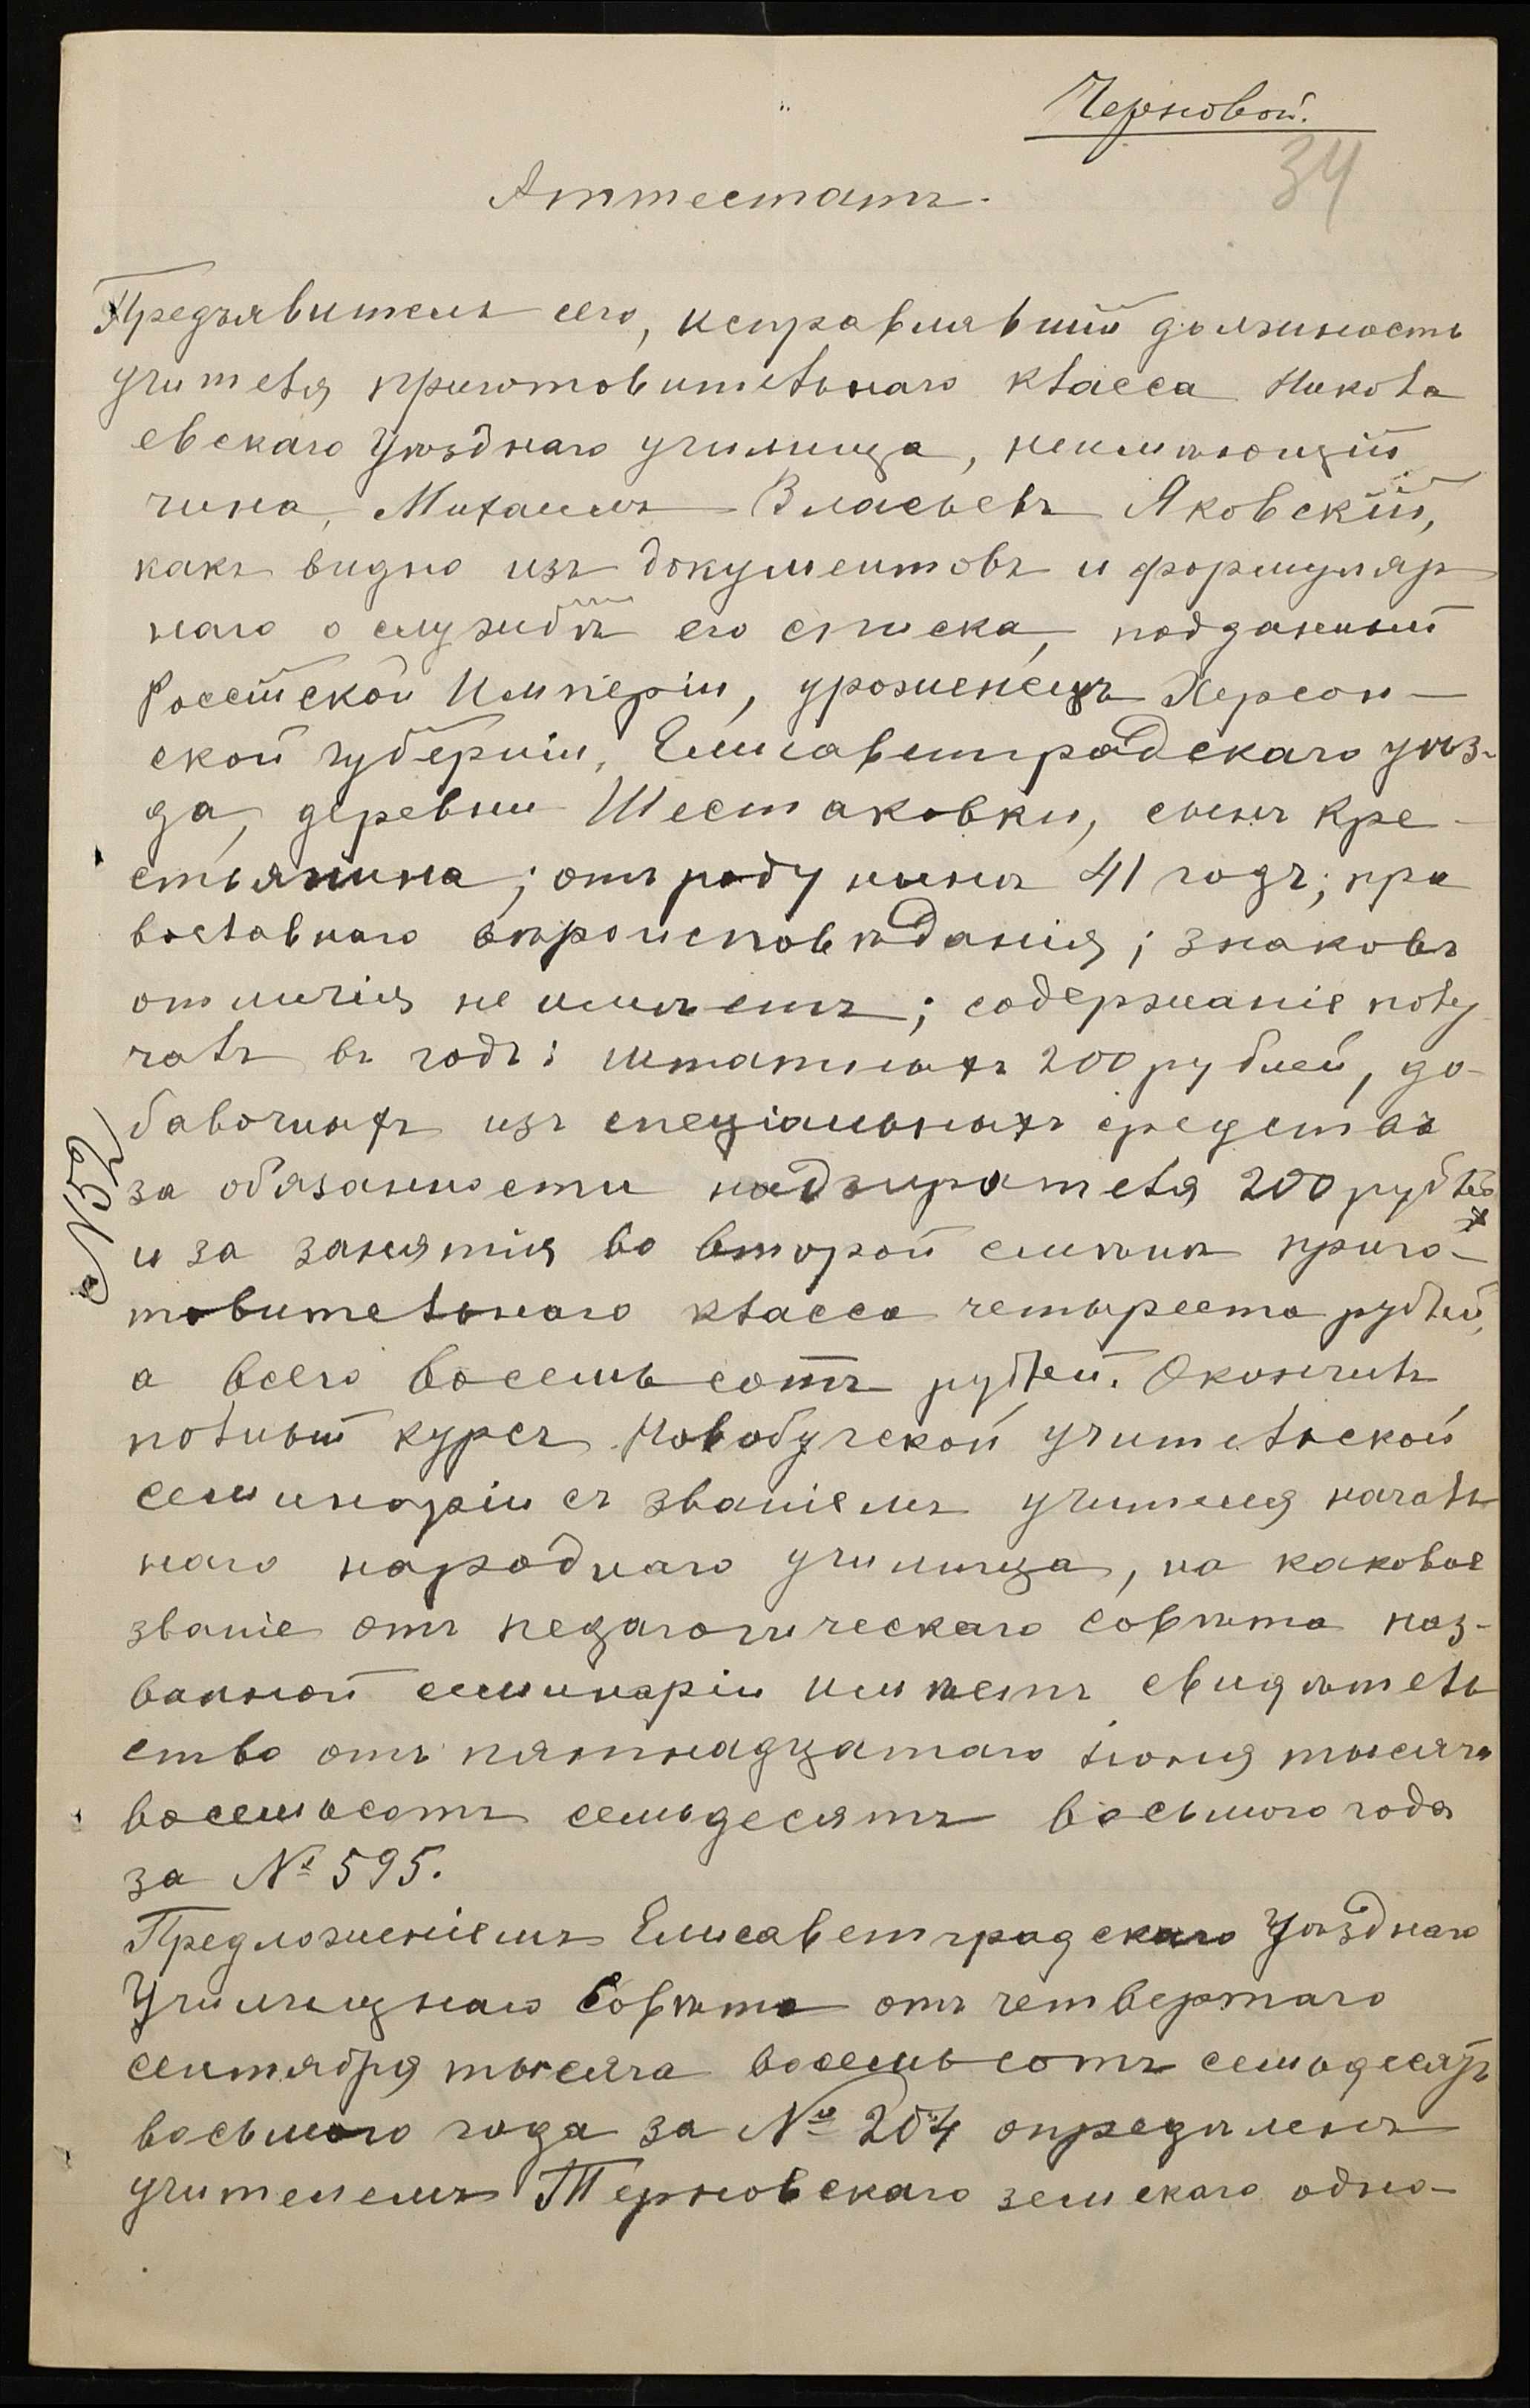 Черновой.
34
Аттестатъ.
Предъявитель сего, исправлявшій должность
учителя приготовительнаго класса Никола
евскаго Уѣзднаго училища, неимѣющій
чина, Михаилъ Власьевъ Яковскій,
какъ видно изъ документовъ и формуляр
наго о службѣ его списка, подданный
Россійской Имперіи, уроженецъ Херсон-
ской губерніи, Елисаветградскаго уѣз-
да, деревни Шестаковки, сынъ кре-
стьянина; отъ роду нынѣ 41 годъ; пра
вославнаго вѣроисповѣданія; знаковъ
отличія не имѣетъ; содержаніе полу
чалъ въ годъ: штатныхъ 200 рублей, до-
бавочныхъ изъ спеціальныхъ средствъ
за обязанности надзирателя 200 рублей
и за занятія во второй смѣнѣ приго-
товительнаго класса четыреста рублей,
а всего восемьсотъ рублей. Окончилъ
полный курсъ Новобугской учительской
семинаріи съ званіемъ учителя началь
наго народнаго училища, на каковое
званіе отъ педагогическаго совѣта наз-
ванной семинаріи имѣетъ свидѣтель
ство отъ пятнадцатаго іюня тысяча
восемьсотъ семьдесятъ восьмого года
за № 595.
Предложеніемъ Елисаветградскаго Уѣзднаго
Училищнаго Совѣта отъ четвертаго
сентября тысяча восемьсотъ семьдесятъ
восьмого года за № 204 опредѣленъ
учителемъ Терновскаго земскаго одно-
№ 52